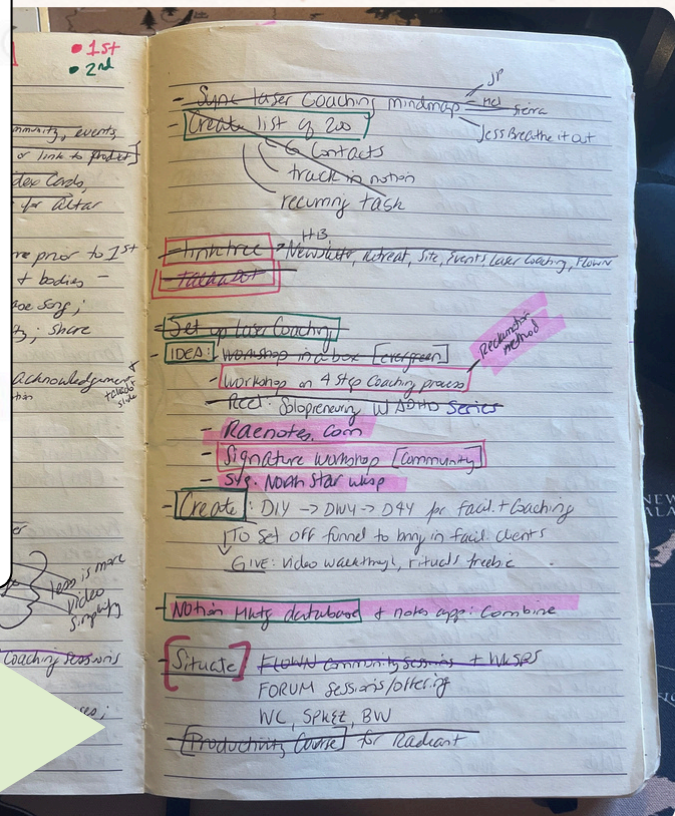 • 1st
• 2nd
mmunity, events
or link to product]
dex Cards,
for altar
re prior to 1st
+ bodies -
Song;
share
acknowledgement
less is more
video
simplify
Coaching sessions
- Sync laser coaching mindmap
JP
Mel
Sierra
Jess Breathe it out
- Create list of 200
Contacts
track in notion
recurring task
Linktree
HB
Newsletter, Retreat, Site, Events, Laser Coaching, FLOWN
- Set up laser Coaching
- IDEA: Workshop in a box [evergreen]
- Workshop on 4 step Coaching process
method
- Reel: Solopreneuring W ADHD Series
- Raenotes.com
- Signature Workshop [Community]
- Sig. North Star wksp
- Create: DIY → DWY → D4Y for Facil. + Coaching
To Set off funnel to bring in facil clients
GIVE: video walkthrough, rituals freebie
- Notion Mktg database + notes app: Combine
- [Situate] FLOWN Community Sessions + WKSPS
FORUM Sessions/offering
WC, SPKEZ, BW
- [Productivity Course] for Radiant
NEW
ALA